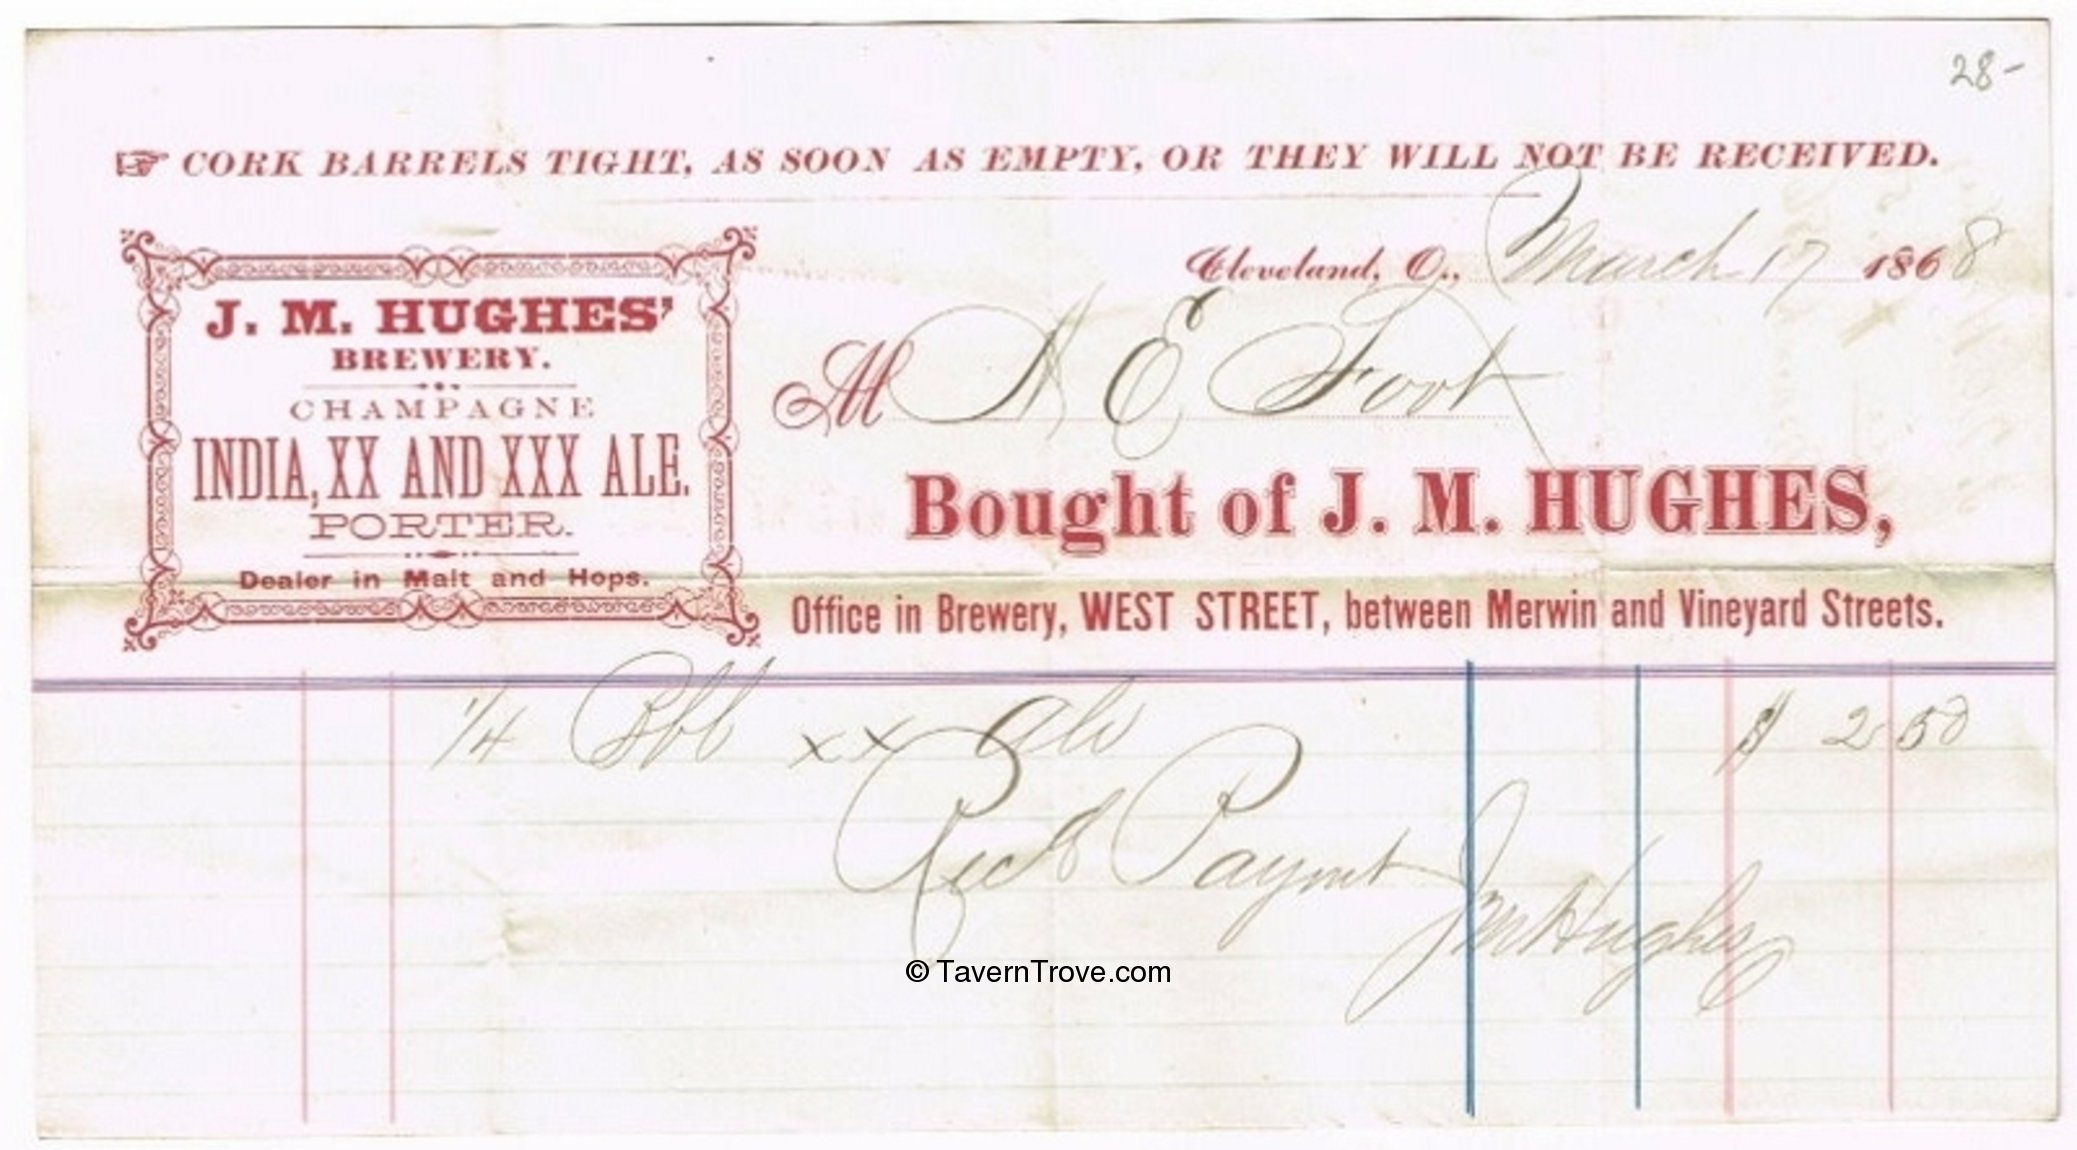 28-
CORK BARRELS TIGHT, AS SOON AS EMPTY, OR THEY WILL NOT BE RECEIVED.
Cleveland, O., March 17 1868
J. M. HUGHES'
BREWERY.
CHAMPAGNE
INDIA, XX AND XXX ALE.
PORTER.
Dealer in Malt and Hops.
M N E Foot
Bought of J. M. HUGHES,
Office in Brewery, WEST STREET, between Merwin and Vineyard Streets.
1/4 Bbl xx ale $ 2 50
Recd Paymt
JM Hughes
© TavernTrove.com